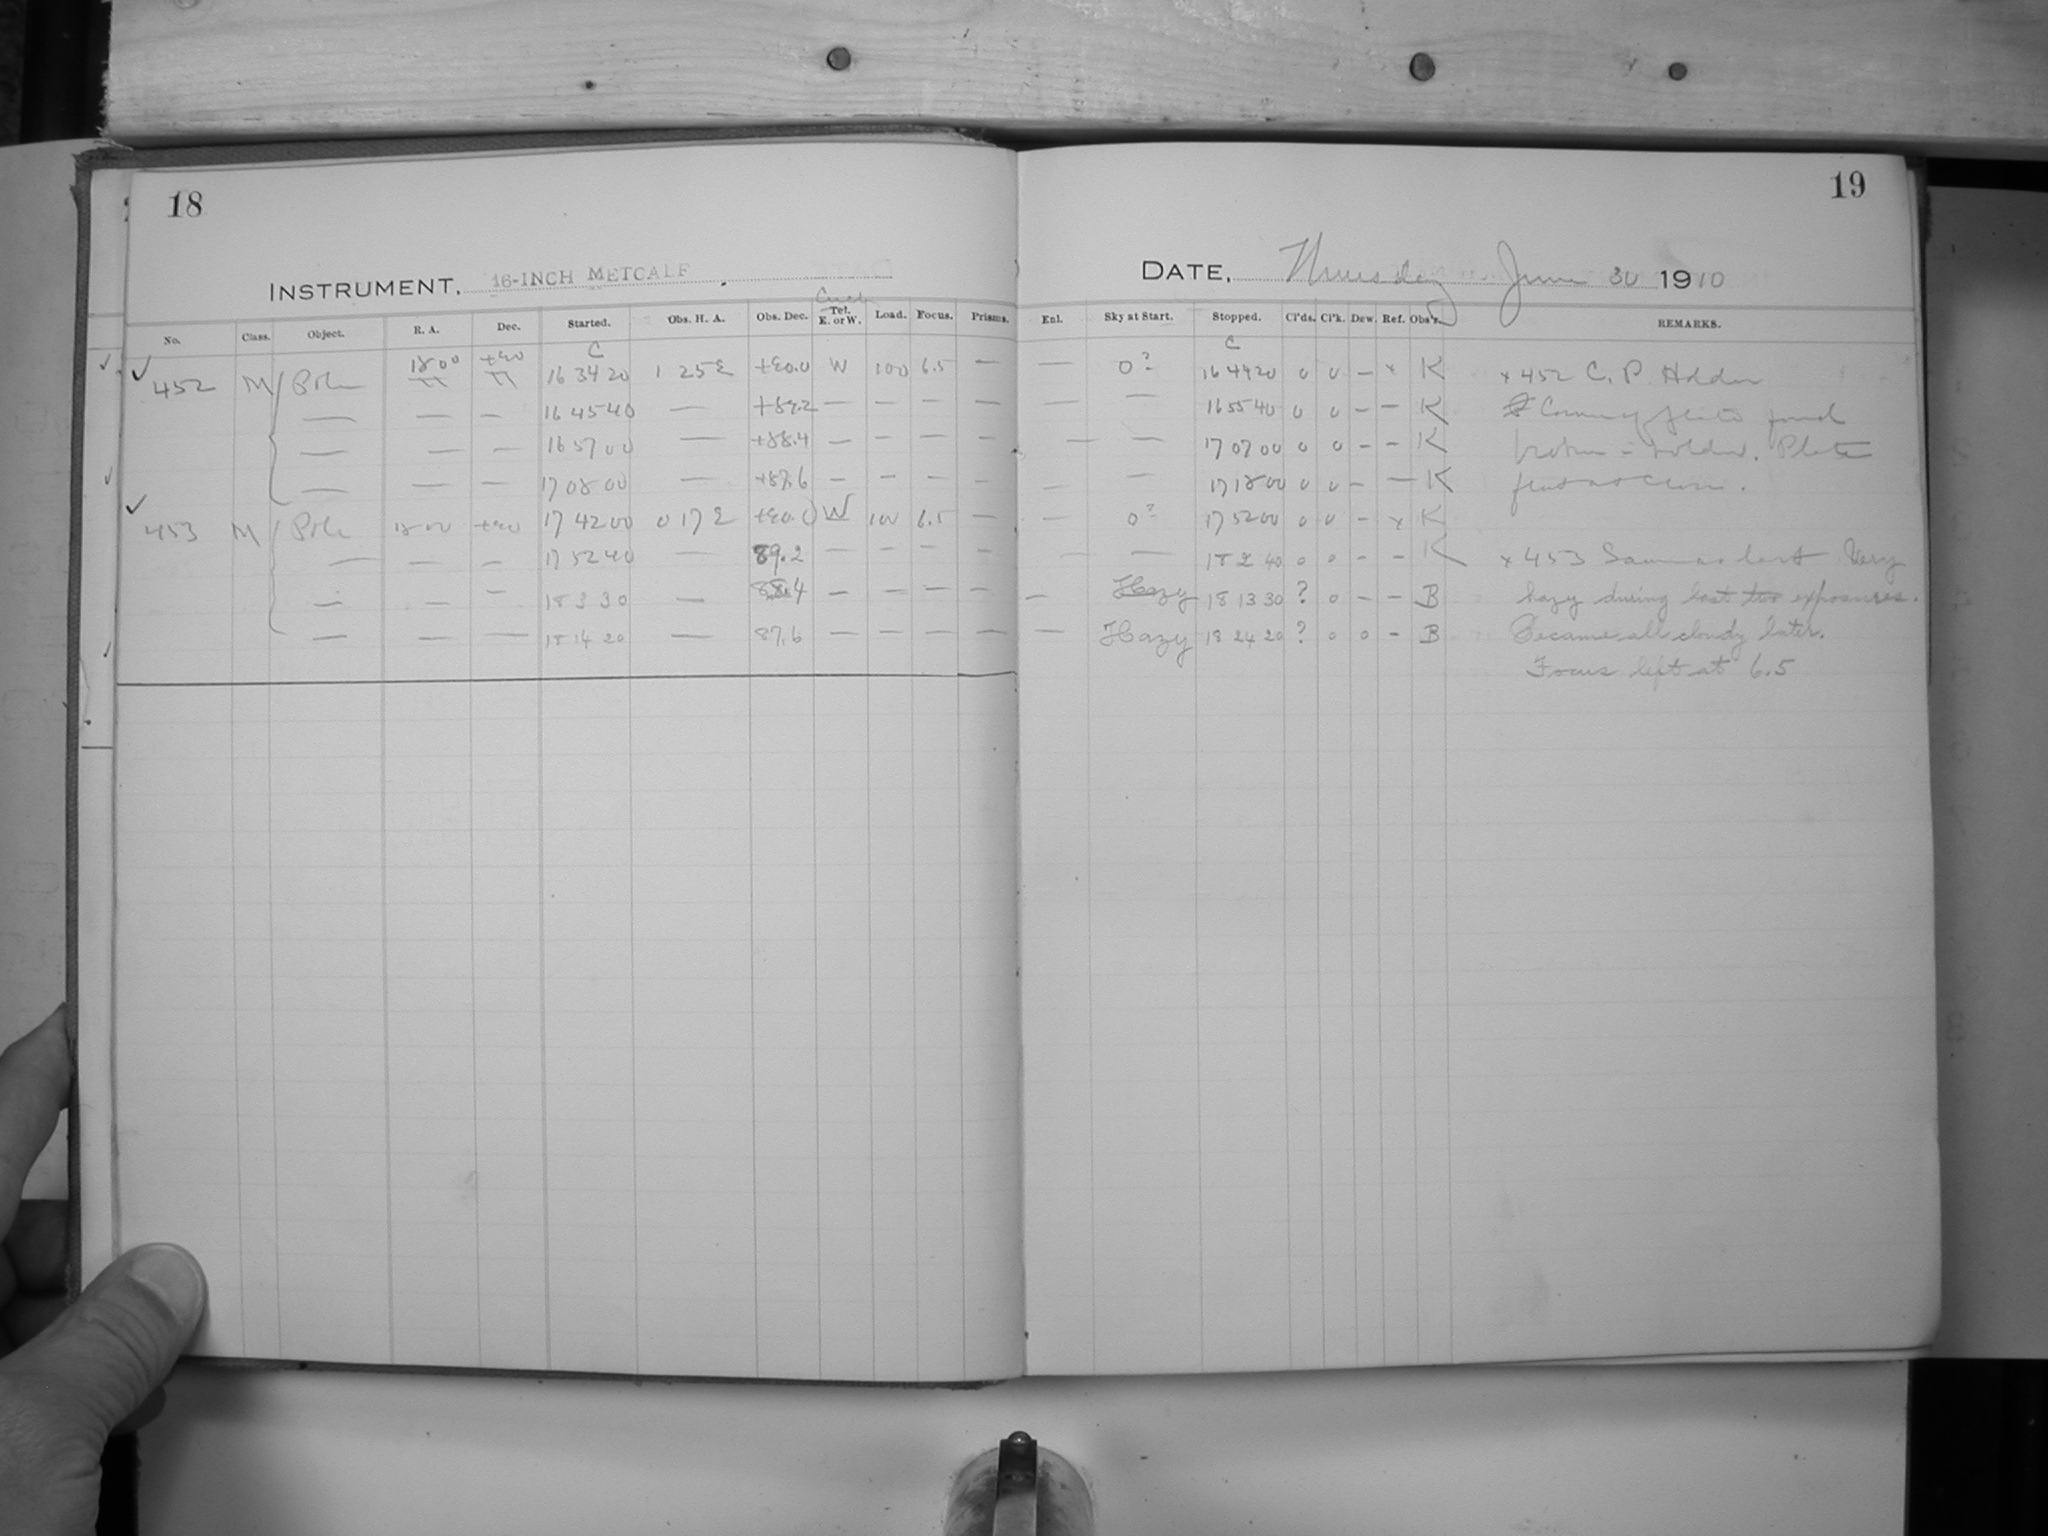 18
19
INSTRUMENT, 16-INCH METCALF
DATE, Thursday June 30 1910
No. Class. Object. R. A. Dec. Started. Obs. H. A. Obs. Dec. Tel. E. or W. Load. Focus. Prisms. Enl. Sky at Start. Stopped. Cl'ds. Cl'k. Dew. Ref. Obs'r. REMARKS.
C C
✓ 452 M Pole 18 00 +90 16 34 20 1 25 E +90.0 W 100 6.5 — — 0? 16 44 20 0 0 — x K x 452 C. P. Holder
— — — 16 45 40 — +89.2 — — — — — — 16 55 40 0 0 — — K Corner of plate found
— — — 16 57 00 — +88.4 — — — — — — 17 07 00 0 0 — — K broken in holder. Plate
— — — 17 08 00 — +87.6 — — — — — — 17 18 00 0 0 — — K
✓ 453 M Pole 18 00 +90 17 42 00 0 17 E +90.0 W 100 6.5 — — 0? 17 52 00 0 0 — x K
— — — 17 52 40 — 89.2 — — — — — — 18 2 40 0 0 — — K x 453 Same as last Very
— — — 18 3 30 — 88.4 — — — — — Hazy 18 13 30 ? 0 — — B hazy during last two exposures.
— — — 18 14 20 — 87.6 — — — — — Hazy 18 24 20 ? 0 0 — B Became all cloudy later.
Focus left at 6.5